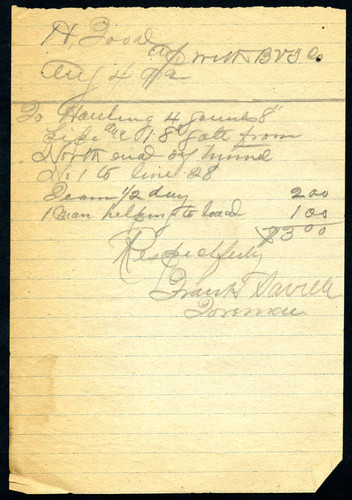 H. Good
a/c with BVS Co
Aug 4
To Hauling 4 8"
pipe 1 8" from
North end of Tunnel
No 1 to line 28
Team 1/2 day 2 00
1 man helping to load 1 00
$3 00
Respectfully
Frank Saville
Foreman